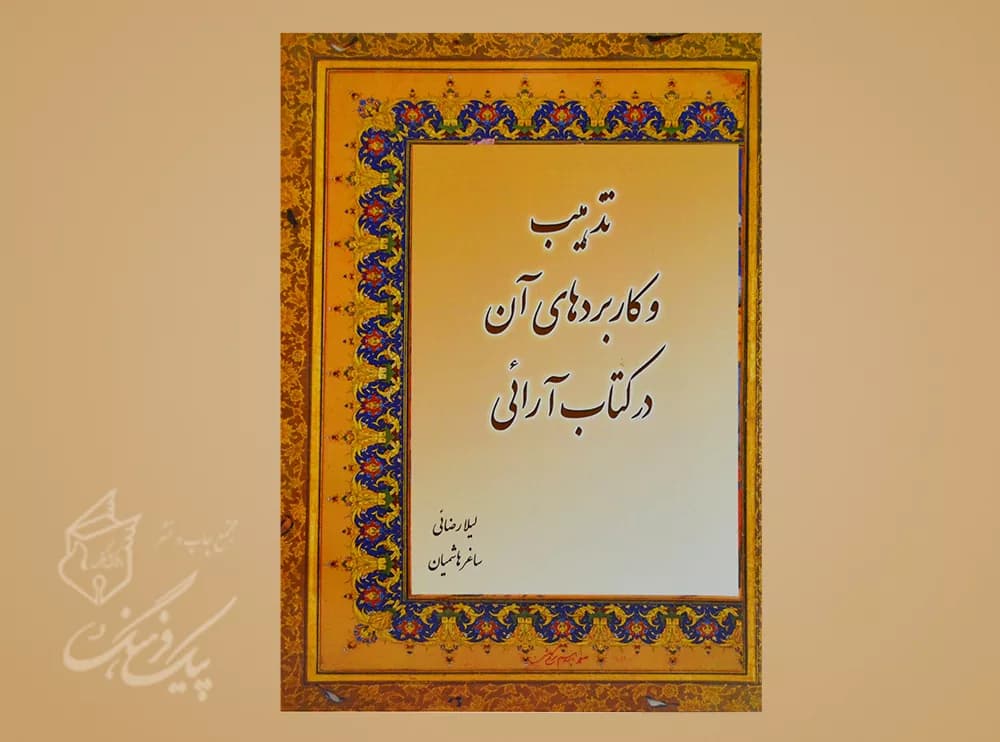 تذهیب
و کاربردهای آن
در کتاب آرائی
لیلا رضائی
ساغر هاشمیان
مجتمع چاپ و نشر
پیک فرهنگ